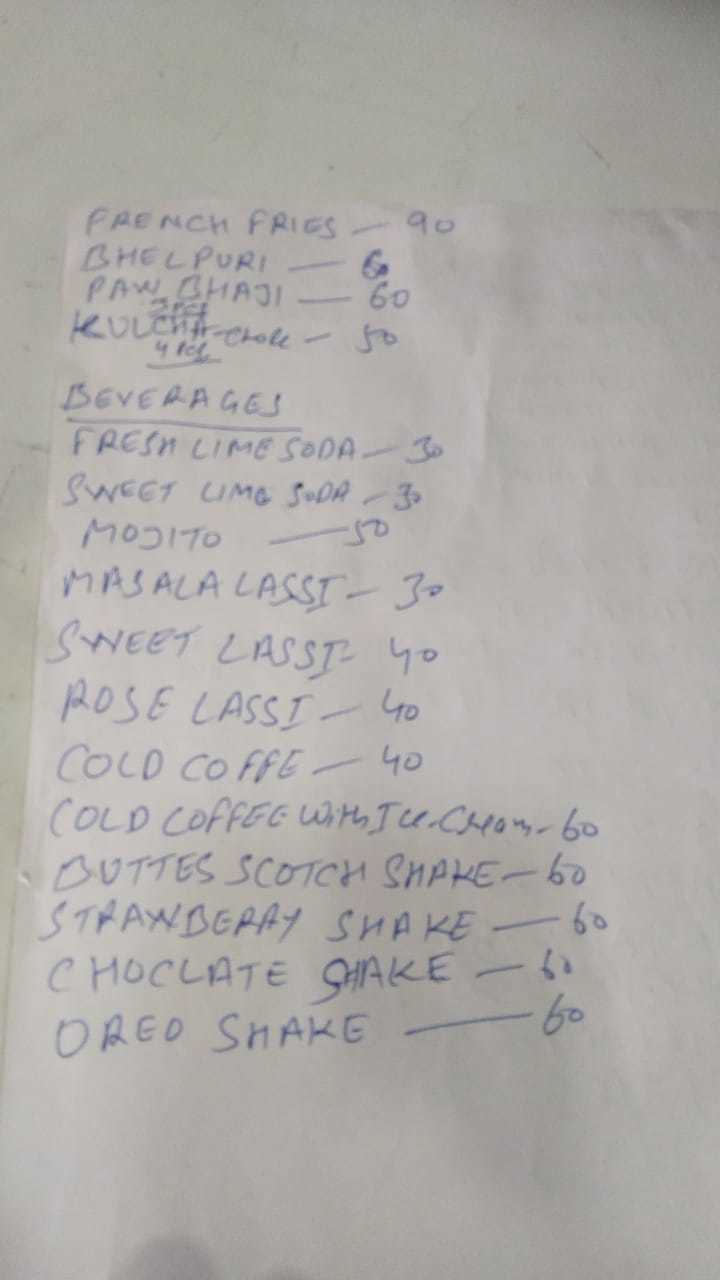 FRENCH FRIES — 90
BHELPURI — 60
PAW BHAJI — 60
3 PCS
KULCHA-Chole — 50
4 PCS
BEVERAGES
FRESH LIME SODA — 30
SWEET LIME SODA — 30
MOJITO — 50
MASALA LASSI — 30
SWEET LASSI - 40
ROSE LASSI — 40
COLD COFFE — 40
COLD COFFEE With Ice-Cream - 60
BUTTES SCOTCH SHAKE — 60
STRAWBERRY SHAKE — 60
CHOCLATE SHAKE — 60
OREO SHAKE — 60